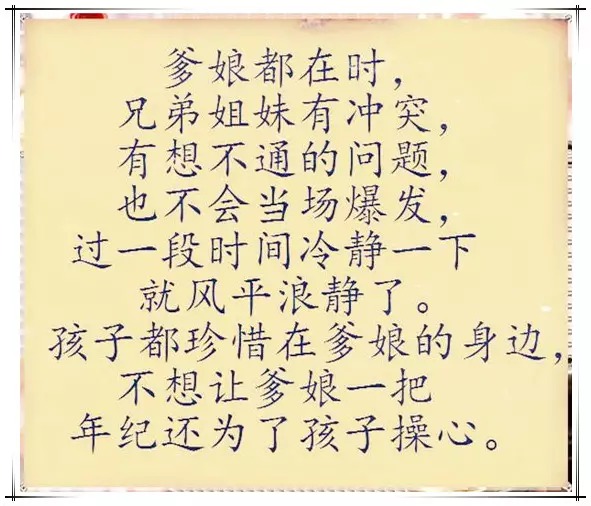 爹娘都在时，
兄弟姐妹有冲突，
有想不通的问题，
也不会当场爆发，
过一段时间冷静一下
就风平浪静了。
孩子都珍惜在爹娘的身边，
不想让爹娘一把
年纪还为了孩子操心。